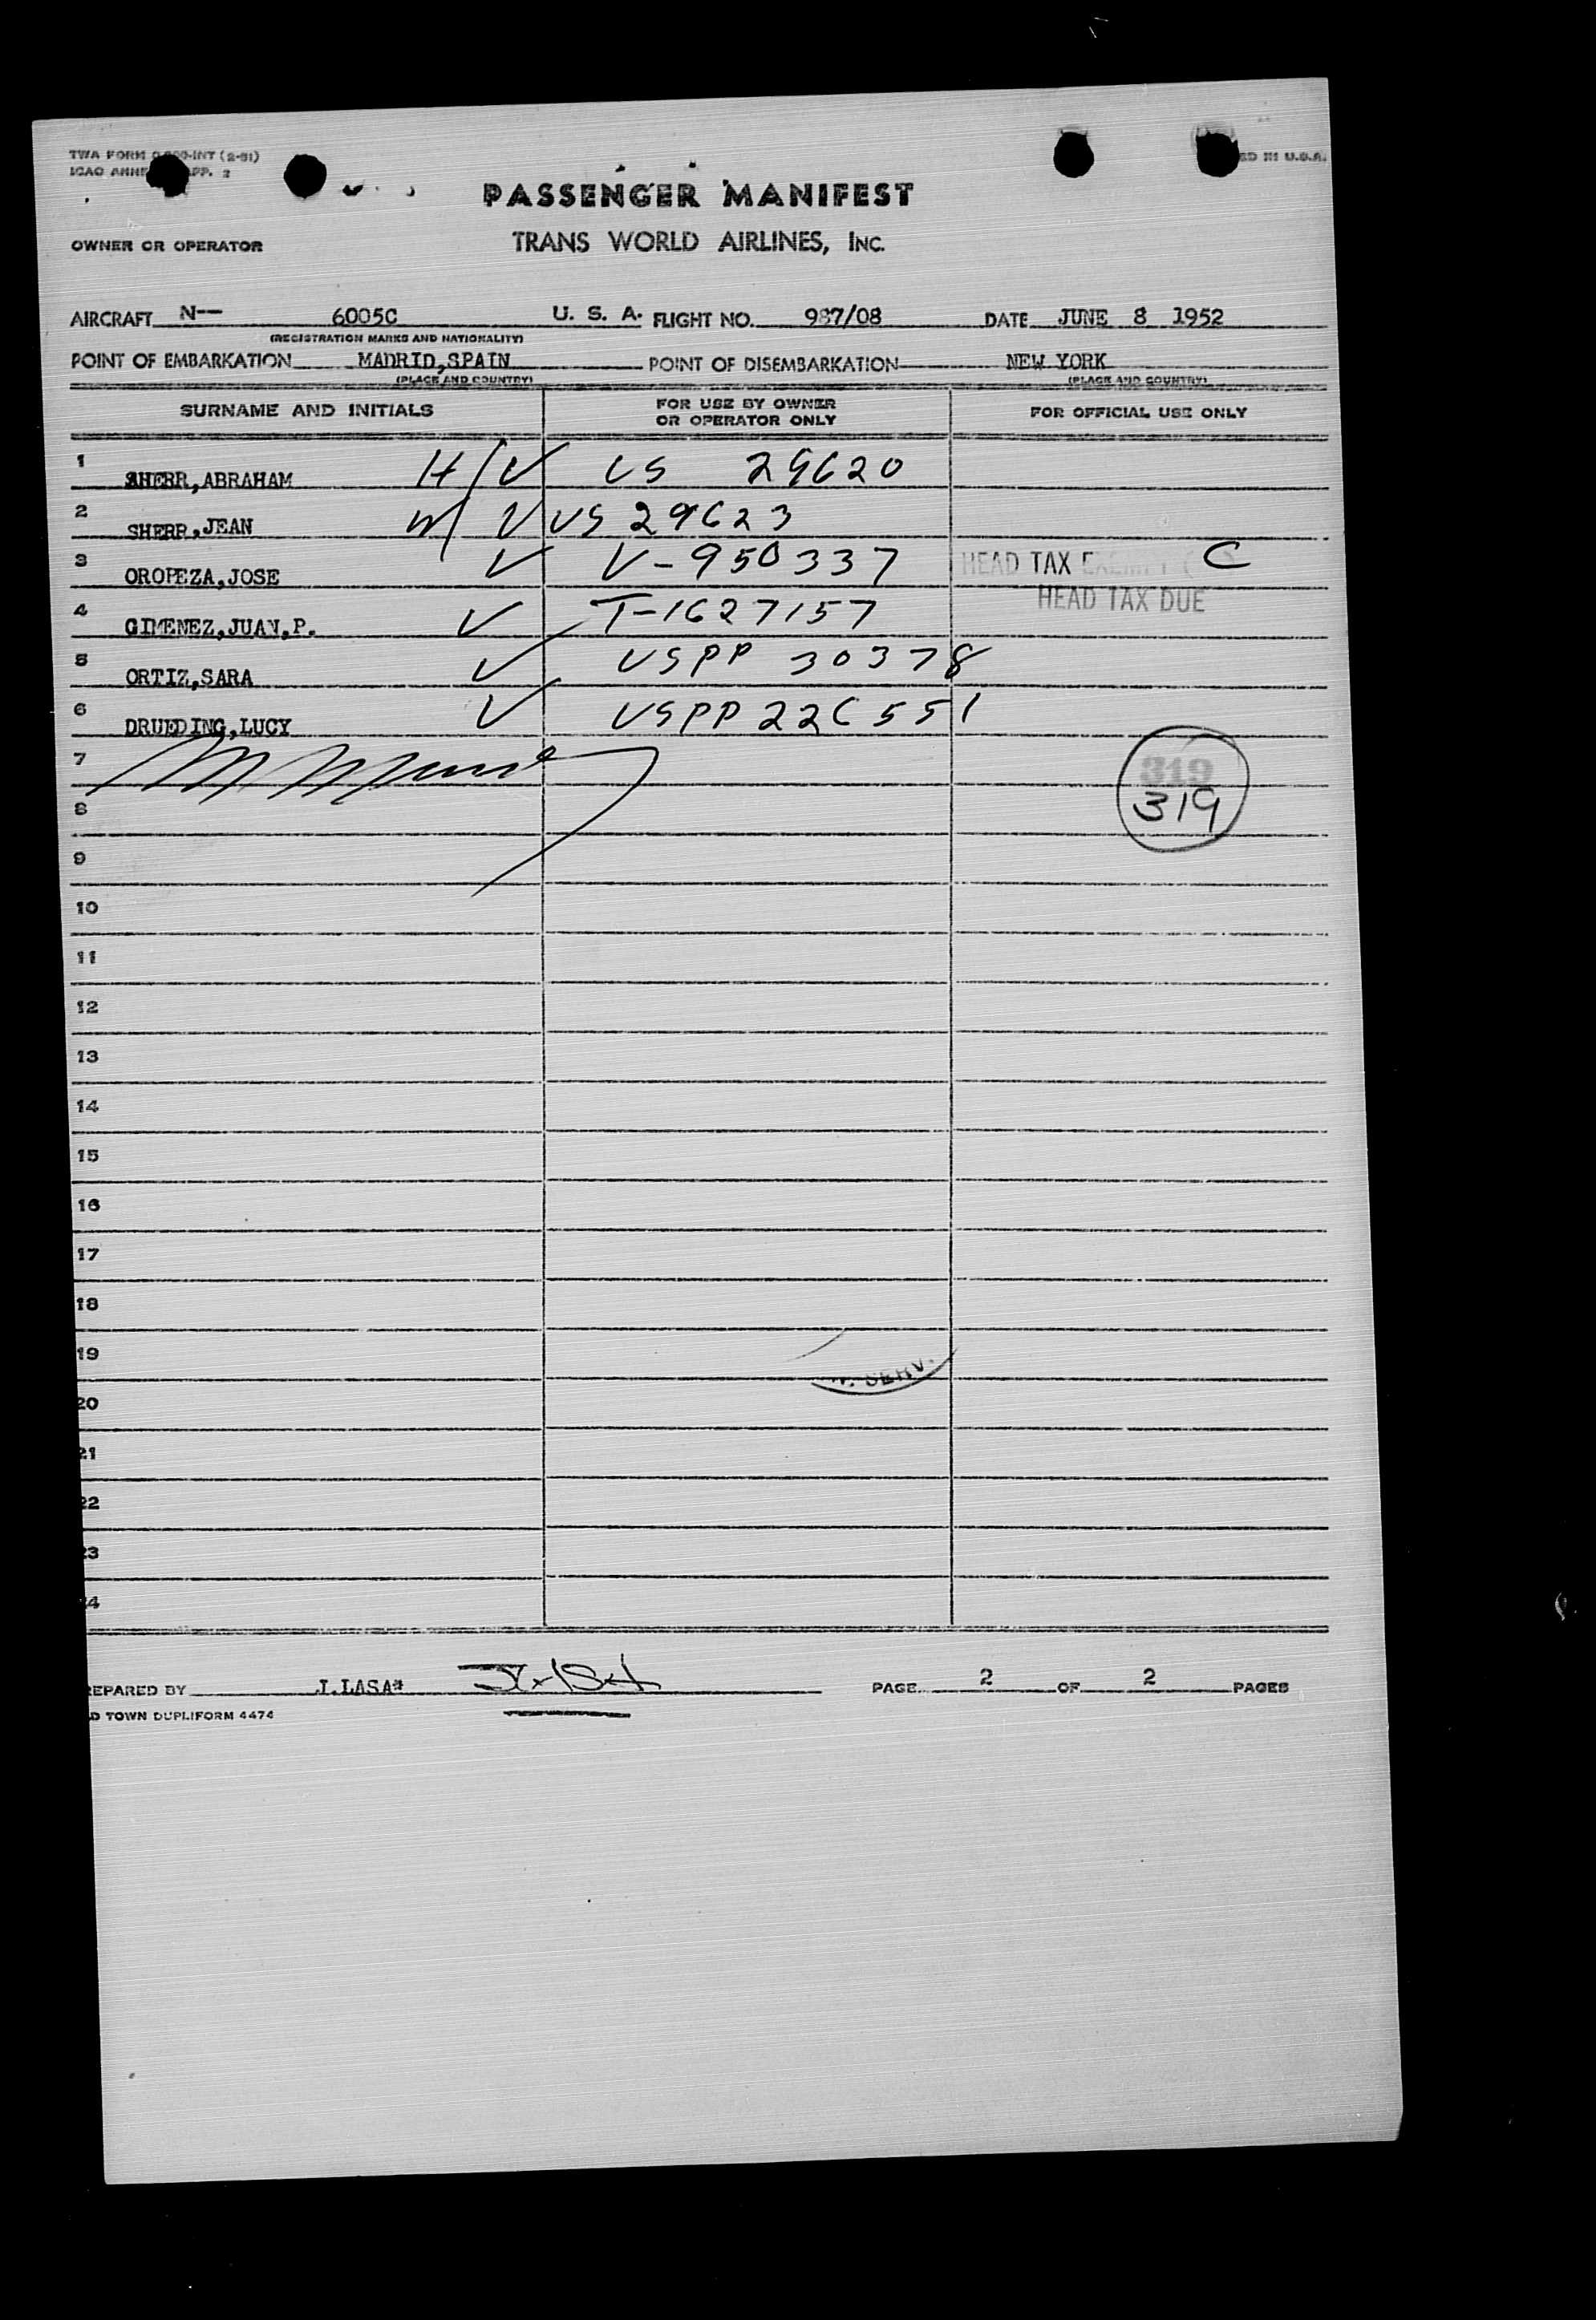 TWA FORM -INT (2-51)
ICAO ANNE PP. 2
ED IN U.S.A.
PASSENGER MANIFEST
OWNER OR OPERATOR TRANS WORLD AIRLINES, INC.
AIRCRAFT N-- 6005C U. S. A. FLIGHT NO. 987/08 DATE JUNE 8 1952
(REGISTRATION MARKS AND NATIONALITY)
POINT OF EMBARKATION MADRID,SPAIN POINT OF DISEMBARKATION NEW YORK
(PLACE AND COUNTRY) (PLACE AND COUNTRY)
SURNAME AND INITIALS FOR USE BY OWNER OR OPERATOR ONLY FOR OFFICIAL USE ONLY
1 SHERR,ABRAHAM H/ V US 29620
2 SHERR,JEAN W/ V US 29623
3 OROPEZA,JOSE V V-950337 HEAD TAX EXEMPT ( C
4 GIMENEZ,JUAN,P. V T-1627157 HEAD TAX DUE
5 ORTIZ,SARA V USPP 30378
6 DRUEDING,LUCY V USPP 226551
7
319
8 319
9
10
11
12
13
14
15
16
17
18
19
SERV.
20
21
22
23
24
REPARED BY J.LASA* PAGE 2 OF 2 PAGES
D TOWN DUPLIFORM 4474